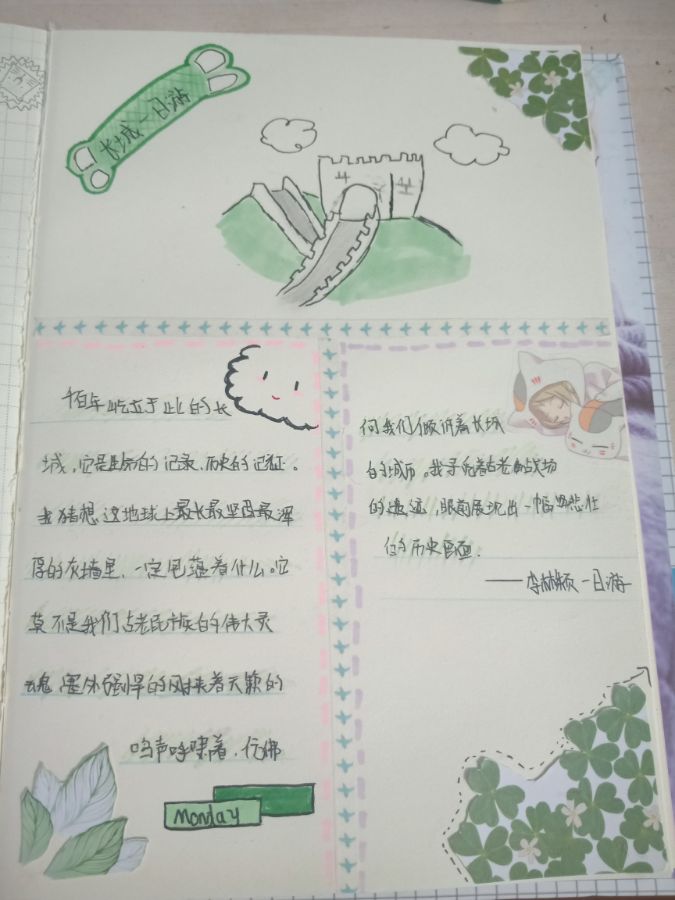 长城一日游
千百年屹立于此的长
城,它是最后的记录,历史的记证。
我猜想这地球上最长最坚固最深
厚的灰墙里,一定包蕴着什么。它
莫不是我们古老民族的伟大灵
魂,塞外强悍的风挟着天籁的
呜声呼啸着,仿佛
Monday
向我们倾诉着长城
的城历。我手抚着古老的战场
的遗迹,眼前展现出一幅幅悲壮
的历史画面.
一日游